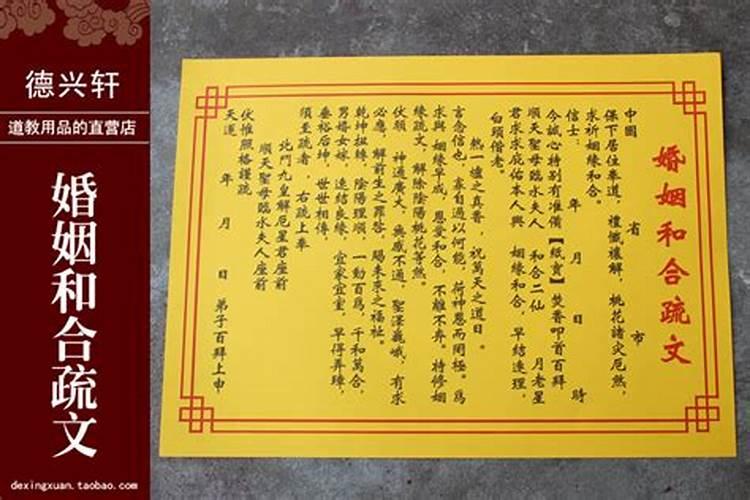 德兴轩
道教用品的直营店
婚姻和合疏文
dexingxuan.taobao.com
婚姻和合疏文
中國 省 市
保下居住奉道,禮懺禳解,桃花諸灾厄煞,
求祈姻緣和合。
信士: 年 月 日 時
今誠心特别有准備【紙寶】焚香叩首百拜
順天聖母臨水夫人 和合二仙 月老星
君求求庇佑本人與 姻緣和合,早結連理,
白頭偕老。
熱一爐之真香,祝萬天之道日。
言念信也,辜自過以何能,荷神恩而罔極。爲
求與 姻緣早成,恩愛和合,不離不弃。特修姻
緣疏文,解除陰陽桃花等煞。
伏願 神通廣大,無感不通,聖澤巍峨,有求
必應,解前生之罪咎,賜未來之福祉。
乾坤扭轉,陰陽理順,一動百爲,千和萬合,
男婚女嫁,速結良緣,宜家宜室,早得弄璋,
垂裕后坤,世世相傳,
須至疏者,右疏上奉
北鬥九皇解厄星君座前
順天聖母臨水夫人座前
伏惟照格謹疏
天運 年 月 日 弟子百拜上申